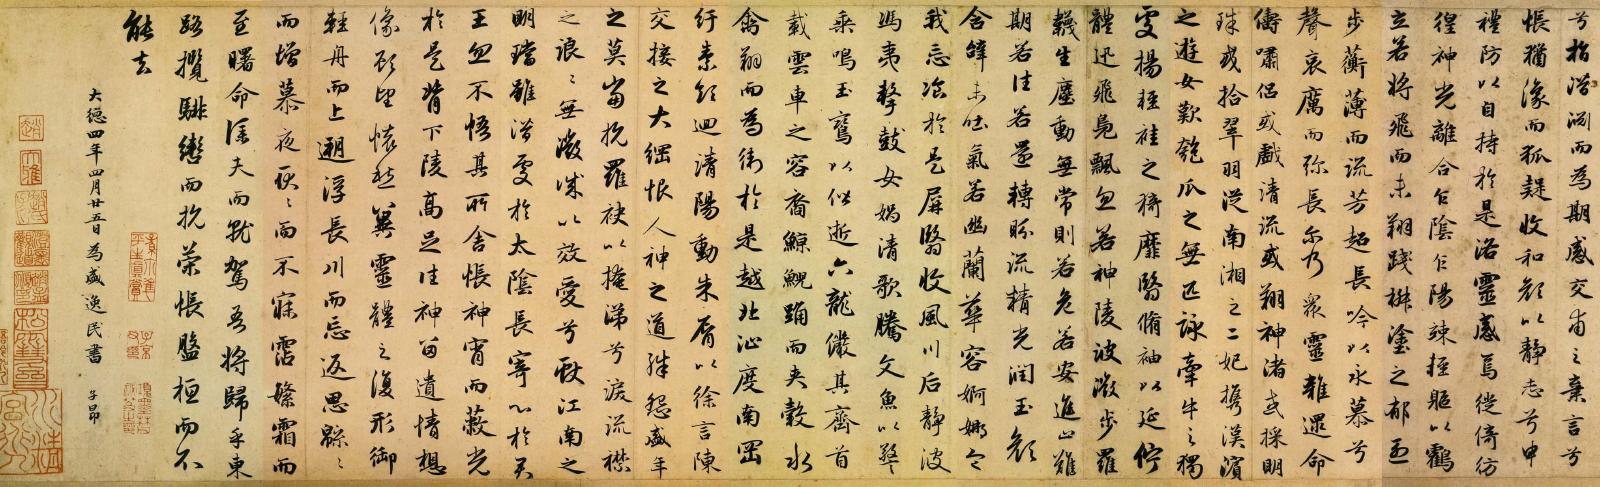 兮指潛淵而為期感交甫之棄言兮
悵猶豫而狐疑收和顏以靜志兮申
禮防以自持於是洛靈感焉徙倚彷
徨神光離合乍陰乍陽竦輕軀以鶴
立若將飛而未翔踐椒塗之郁烈
步蘅薄而流芳超長吟以永慕兮
聲哀厲而弥長爾乃衆靈雜遝命
儔嘯侶或戲清流或翔神渚或採明
珠或拾翠羽從南湘之二妃攜漢濱
之遊女歎匏瓜之無匹詠牽牛之獨
處揚輕袿之猗靡翳脩袖以延佇
體迅飛鳧飄忽若神陵波微步羅
韈生塵動無常則若危若安進止難
期若往若還轉盼流精光潤玉顏
含辭未吐氣若幽蘭華容婀娜令
我忘飡於是屏翳收風川后靜波
馮夷擊鼓女媧清歌騰文魚以警
乘鳴玉鸞以偕逝六龍儼其齊首
載雲車之容裔鯨鯢踊而夾轂水
禽翔而為衛於是越北沚度南岡
紆素領迴清陽動朱脣以徐言陳
交接之大綱恨人神之道殊怨盛年
之莫當抗羅袂以掩涕兮淚流襟
之浪〻無微誠以效愛兮獻江南之
明璫雖潛處於太陰長寄心於君
王忽不悟其所舍悵神宵而蔽光
於是背下陵高足往神留遺情想
像顧望懷愁冀靈體之復形御
輕舟而上遡浮長川而忘返思緜〻
而增慕夜耿〻而不寐霑繁霜而
至曙命僕夫而就駕吾將歸乎東
路攬騑轡而抗策悵盤桓而不
能去
大德四年四月廿五日為盛逸民書 子昂